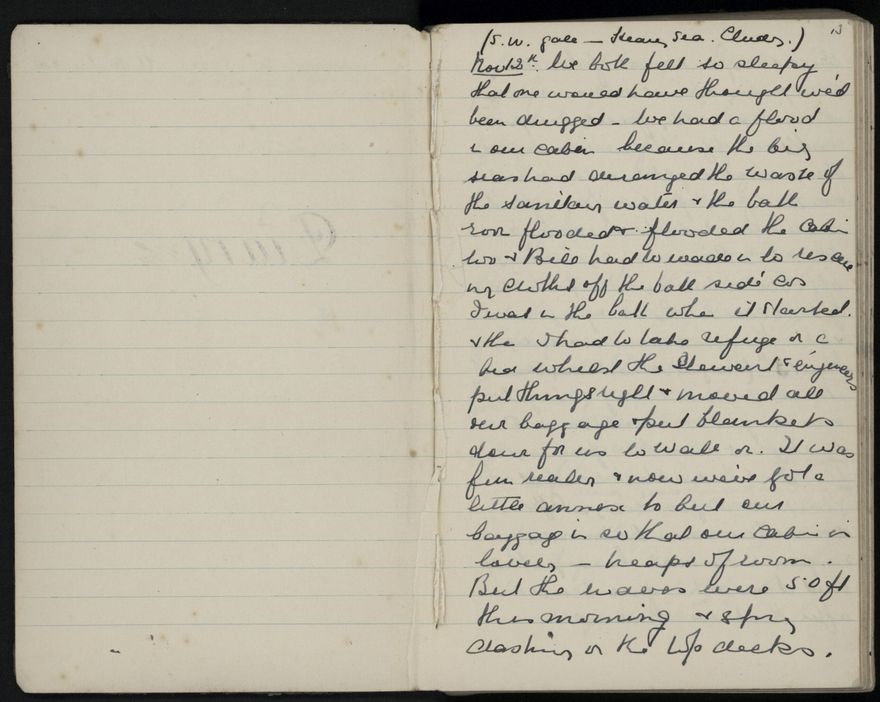 13
(S.W. gale – Heavy Sea. Cloudy.)
Nov 13th. We both felt so sleepy
that one would have thought we'd
been drugged – We had a flood
in our cabin because the big
seas had deranged the waste of
the sanitary water & the bath
room flooded & flooded the cabin
too & Bill had to wade in to rescue
my clothes off the bath side cos
I was in the bath when it started.
& then I had to take refuge on a
bed whilst the Steward & engineers
put things right & moved all
our baggage & put blankets
down for us to walk on. It was
fun really & now we've got a
little annexe to put our
baggage in so that our cabin is
lovely – heaps of room.
But the waves were 50 ft
this morning & spray
dashing on the top decks.
Diary